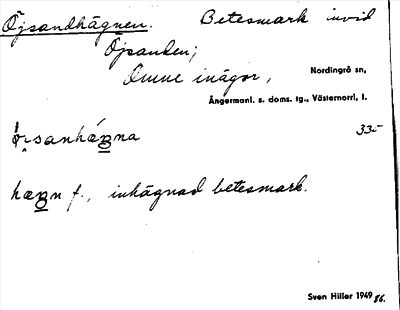 Öjsandhägnen. Betesmark invid
Öjsanden;
Omne inägor, Nordingrå sn,
Ångermanl. s. doms. tg., Västernorrl, l.
33-
hægn f., inhägnad betesmark.
Sven Hiller 1949 86.